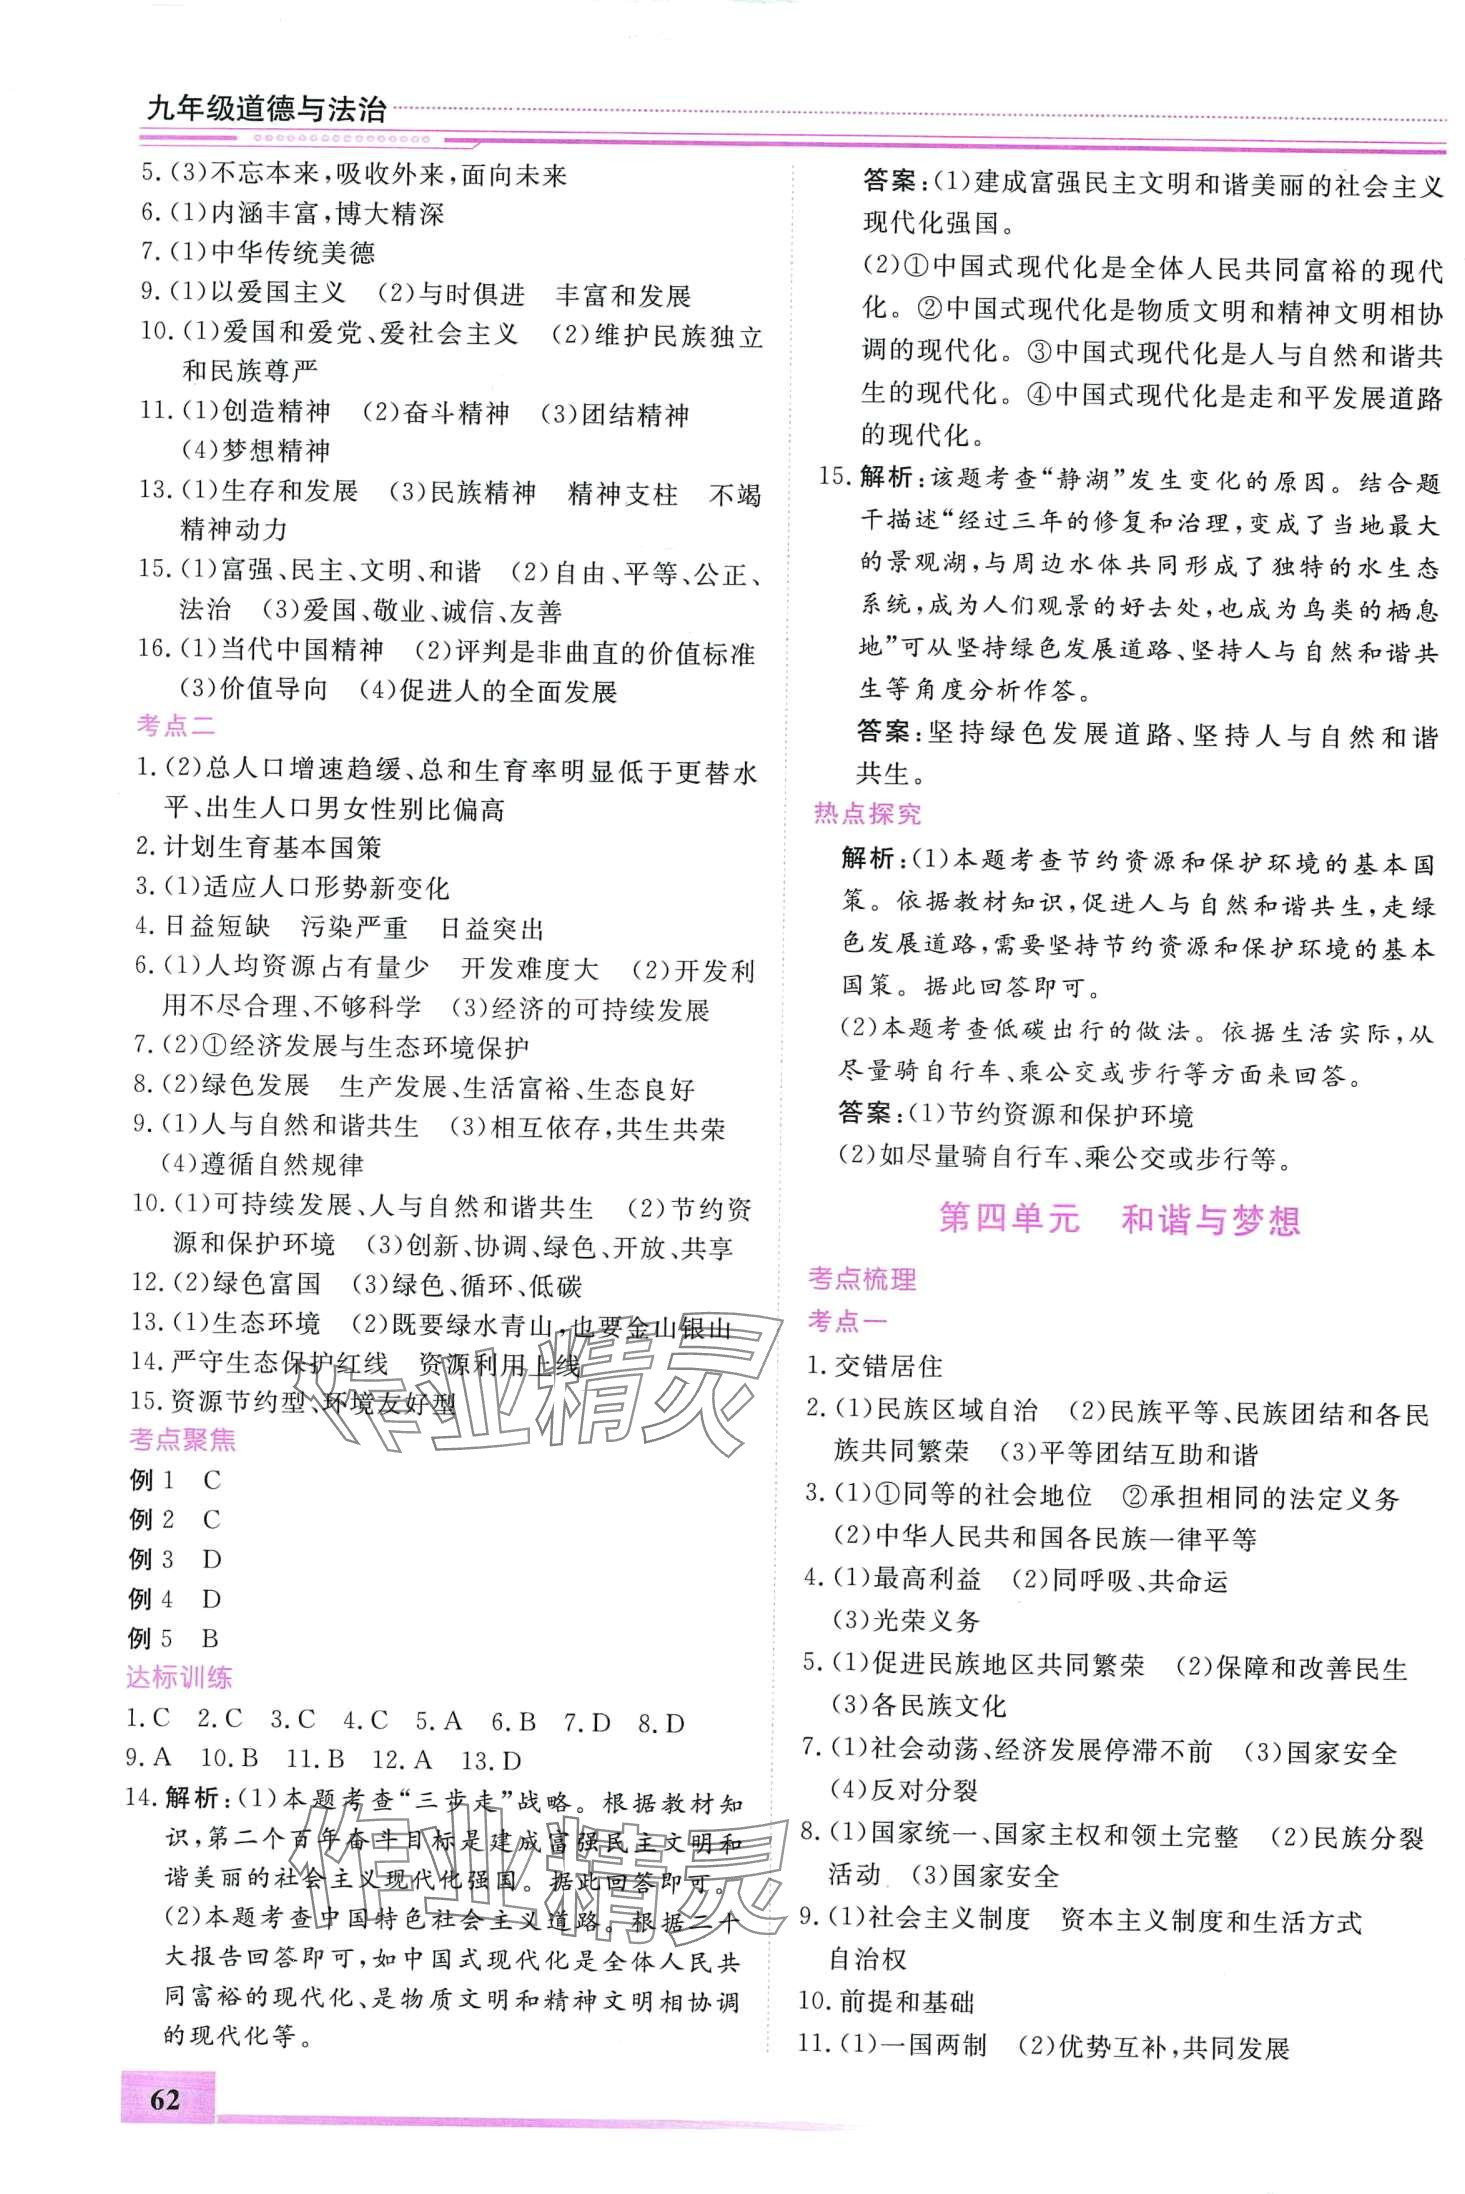 九年级道德与法治
5.(3)不忘本来,吸收外来,面向未来
6.(1)内涵丰富,博大精深
7.(1)中华传统美德
9.(1)以爱国主义　(2)与时俱进　丰富和发展
10.(1)爱国和爱党、爱社会主义　(2)维护民族独立
和民族尊严
11.(1)创造精神　(2)奋斗精神　(3)团结精神
(4)梦想精神
13.(1)生存和发展　(3)民族精神　精神支柱　不竭
精神动力
15.(1)富强、民主、文明、和谐　(2)自由、平等、公正、
法治　(3)爱国、敬业、诚信、友善
16.(1)当代中国精神　(2)评判是非曲直的价值标准
(3)价值导向　(4)促进人的全面发展
考点二
1.(2)总人口增速趋缓、总和生育率明显低于更替水
平、出生人口男女性别比偏高
2.计划生育基本国策
3.(1)适应人口形势新变化
4.日益短缺　污染严重　日益突出
6.(1)人均资源占有量少　开发难度大　(2)开发利
用不尽合理、不够科学　(3)经济的可持续发展
7.(2)①经济发展与生态环境保护
8.(2)绿色发展　生产发展、生活富裕、生态良好
9.(1)人与自然和谐共生　(3)相互依存,共生共荣
(4)遵循自然规律
10.(1)可持续发展、人与自然和谐共生　(2)节约资
源和保护环境　(3)创新、协调、绿色、开放、共享
12.(2)绿色富国　(3)绿色、循环、低碳
13.(1)生态环境　(2)既要绿水青山,也要金山银山
14.严守生态保护红线　资源利用上线
15.资源节约型、环境友好型
考点聚焦
例1　C
例2　C
例3　D
例4　D
例5　B
达标训练
1.C　2.C　3.C　4.C　5.A　6.B　7.D　8.D
9.A　10.B　11.B　12.A　13.D
14.解析:(1)本题考查“三步走”战略。根据教材知
识,第二个百年奋斗目标是建成富强民主文明和
谐美丽的社会主义现代化强国。据此回答即可。
(2)本题考查中国特色社会主义道路。根据二十
大报告回答即可,如中国式现代化是全体人民共
同富裕的现代化、是物质文明和精神文明相协调
的现代化等。
62
答案:(1)建成富强民主文明和谐美丽的社会主义
现代化强国。
(2)①中国式现代化是全体人民共同富裕的现代
化。②中国式现代化是物质文明和精神文明相协
调的现代化。③中国式现代化是人与自然和谐共
生的现代化。④中国式现代化是走和平发展道路
的现代化。
15.解析:该题考查“静湖”发生变化的原因。结合题
干描述“经过三年的修复和治理,变成了当地最大
的景观湖,与周边水体共同形成了独特的水生态
系统,成为人们观景的好去处,也成为鸟类的栖息
地”可从坚持绿色发展道路、坚持人与自然和谐共
生等角度分析作答。
答案:坚持绿色发展道路、坚持人与自然和谐
共生。
热点探究
解析:(1)本题考查节约资源和保护环境的基本国
策。依据教材知识,促进人与自然和谐共生,走绿
色发展道路,需要坚持节约资源和保护环境的基本
国策。据此回答即可。
(2)本题考查低碳出行的做法。依据生活实际,从
尽量骑自行车、乘公交或步行等方面来回答。
答案:(1)节约资源和保护环境
(2)如尽量骑自行车、乘公交或步行等。
第四单元　和谐与梦想
考点梳理
考点一
1.交错居住
2.(1)民族区域自治　(2)民族平等、民族团结和各民
族共同繁荣　(3)平等团结互助和谐
3.(1)①同等的社会地位　②承担相同的法定义务
(2)中华人民共和国各民族一律平等
4.(1)最高利益　(2)同呼吸、共命运
(3)光荣义务
5.(1)促进民族地区共同繁荣　(2)保障和改善民生
(3)各民族文化
7.(1)社会动荡、经济发展停滞不前　(3)国家安全
(4)反对分裂
8.(1)国家统一、国家主权和领土完整　(2)民族分裂
活动　(3)国家安全
9.(1)社会主义制度　资本主义制度和生活方式
自治权
10.前提和基础
11.(1)一国两制　(2)优势互补,共同发展
作业精灵
作业精灵